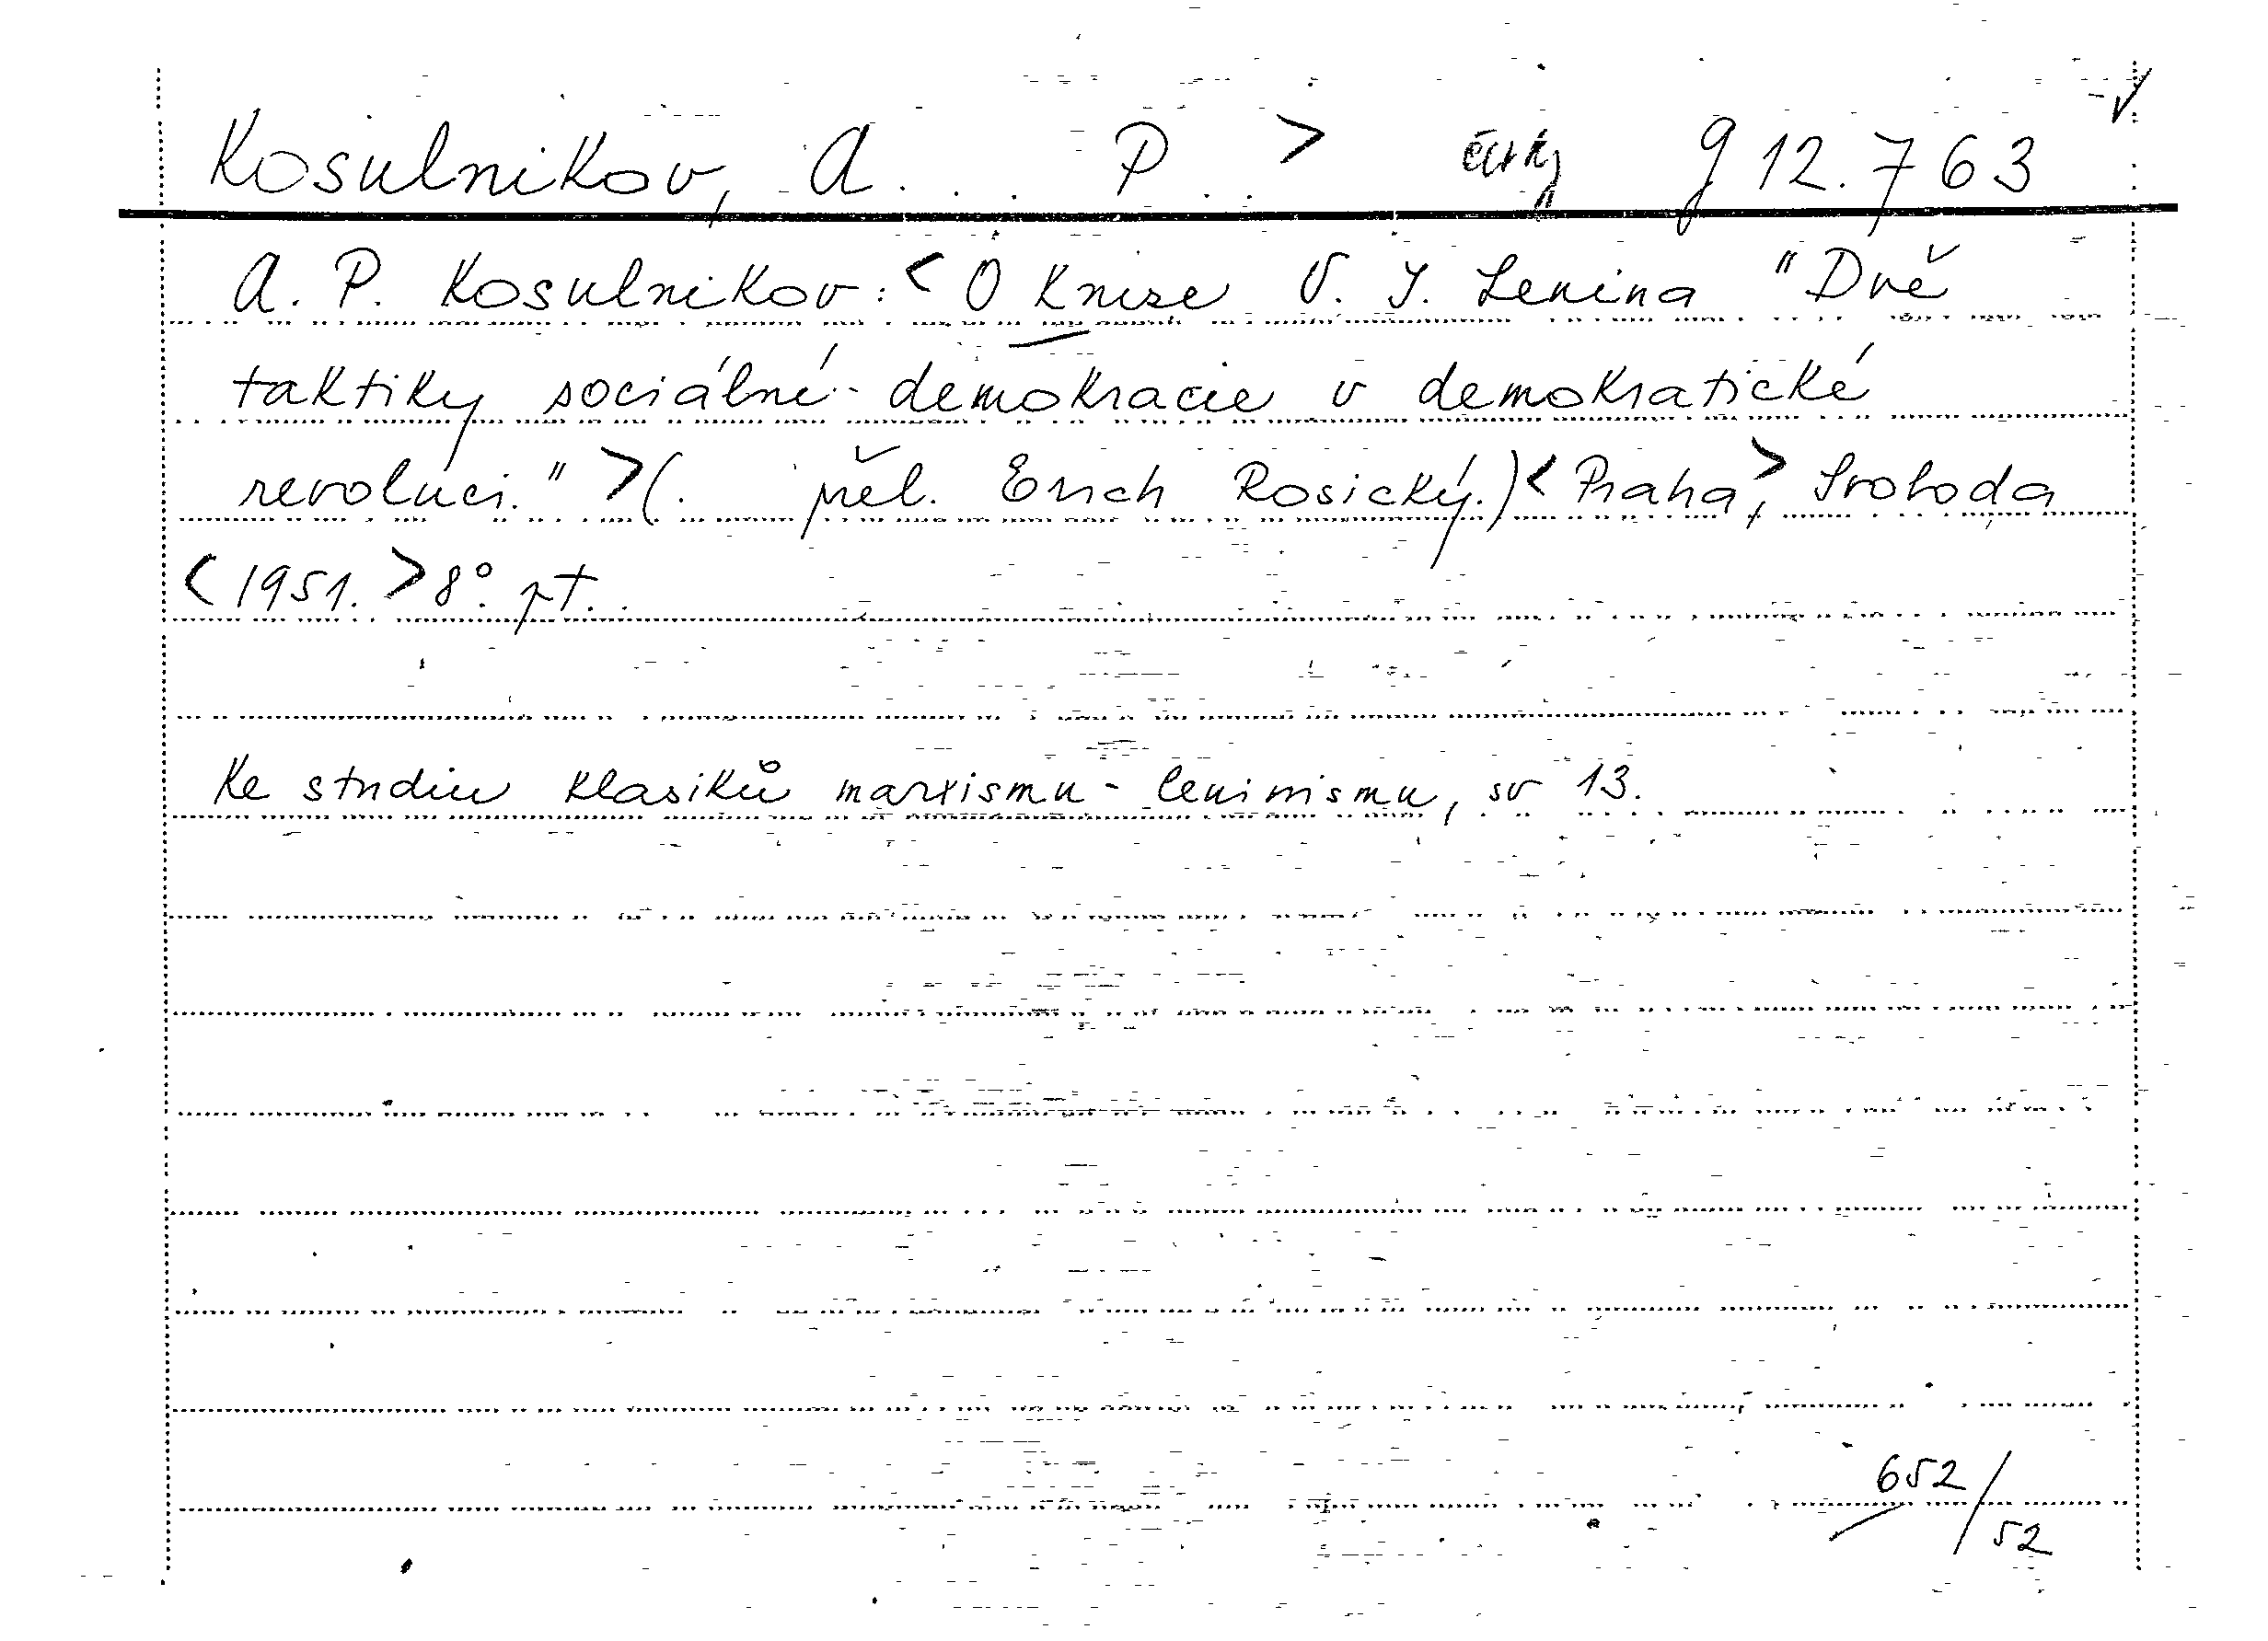 Kosulnikov, A. . . P. . > g 12.763
A. P. Kosulnikov: < O knize V. I. Lenina "Dvě
taktiky sociální demokracie v demokratické
revoluci." > (. přel. Erich Rosický.) < Praha, > Svoboda
< 1951. > 8°. pt. .
Ke studiu klasiků marxismu-leninismu, sv 13.
652/52